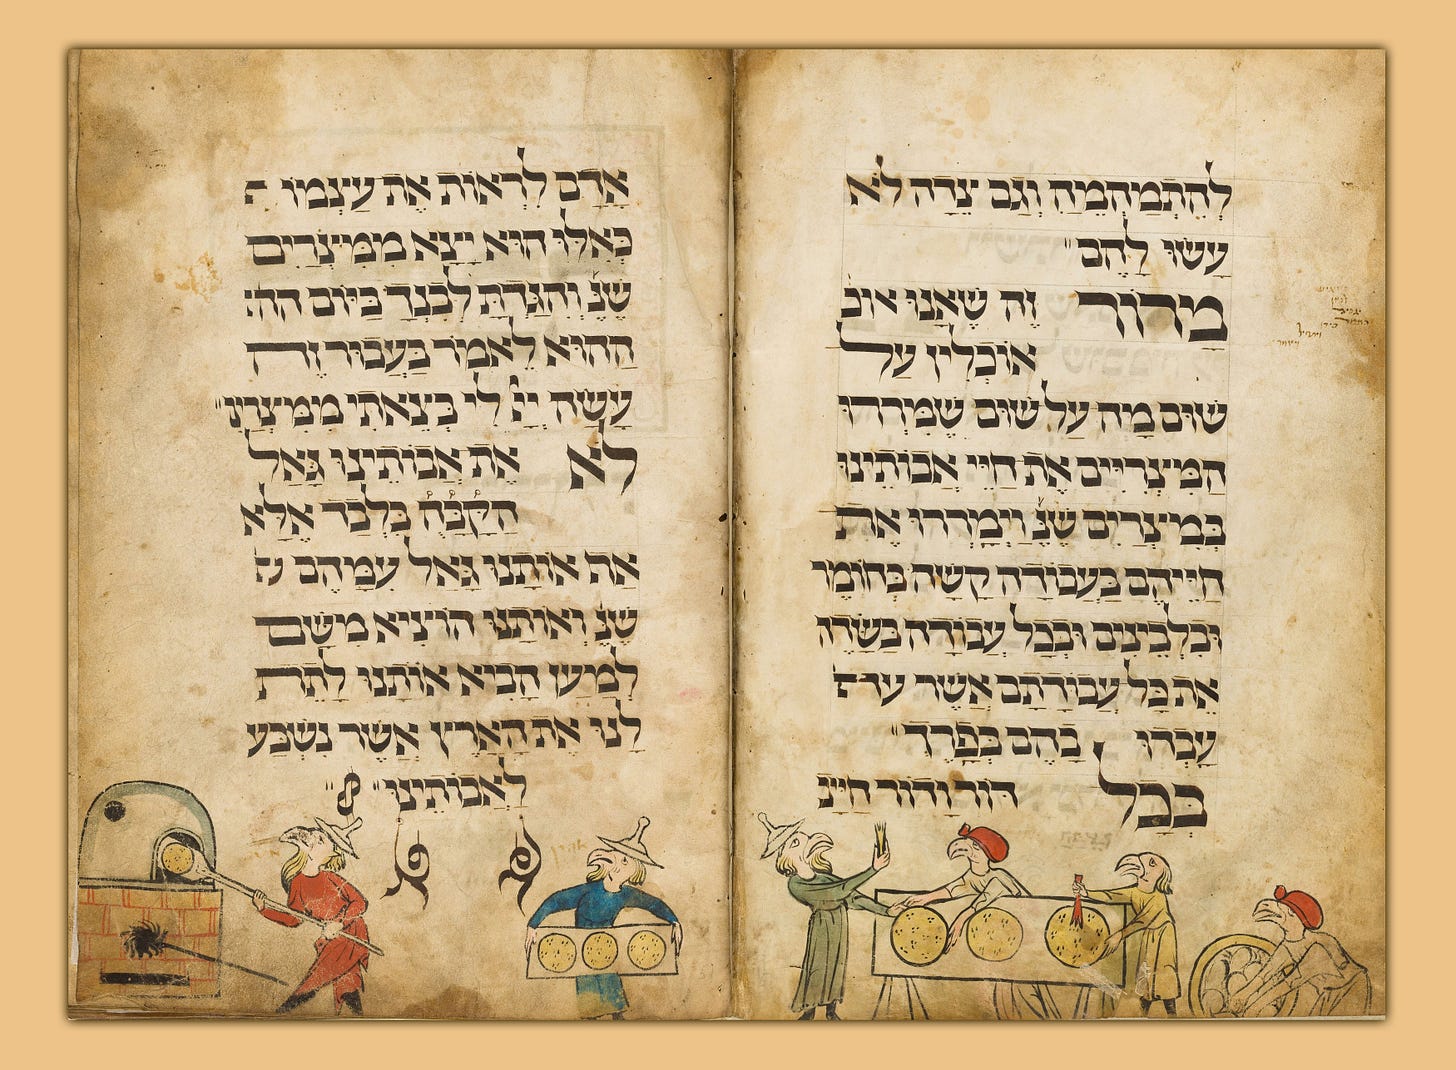 להתמהמה וגם צדה לא
עשו להם״
מרור זה שאנו אוכ
אוכלין על
שום מה על שום שמררו
המיצריים את חיי אבותינו
במיצרים שנ׳ וימררו את
חייהם בעבודה קשה בחומר
ובלבינים ובכל עבודה בשדה
את כל עבודתם אשר
עבדו בהם בפרך״
בכל דור ודור חייב
אדם לראות את עצמו
כאלו הוא יצא ממיצרים
שנ׳ והגדת לבנך ביום הה
ההוא לאמר בעבור זה
עשה ייי לי בצאתי ממיצרי״
לא את אבותינו גאל
הקבה בלבד אלא
את אותנו גאל עמיהם
שנ׳ ואותנו הוציא משם
למען הביא אותנו לתת
לנו את הארץ אשר נשבע
לאבותינו״